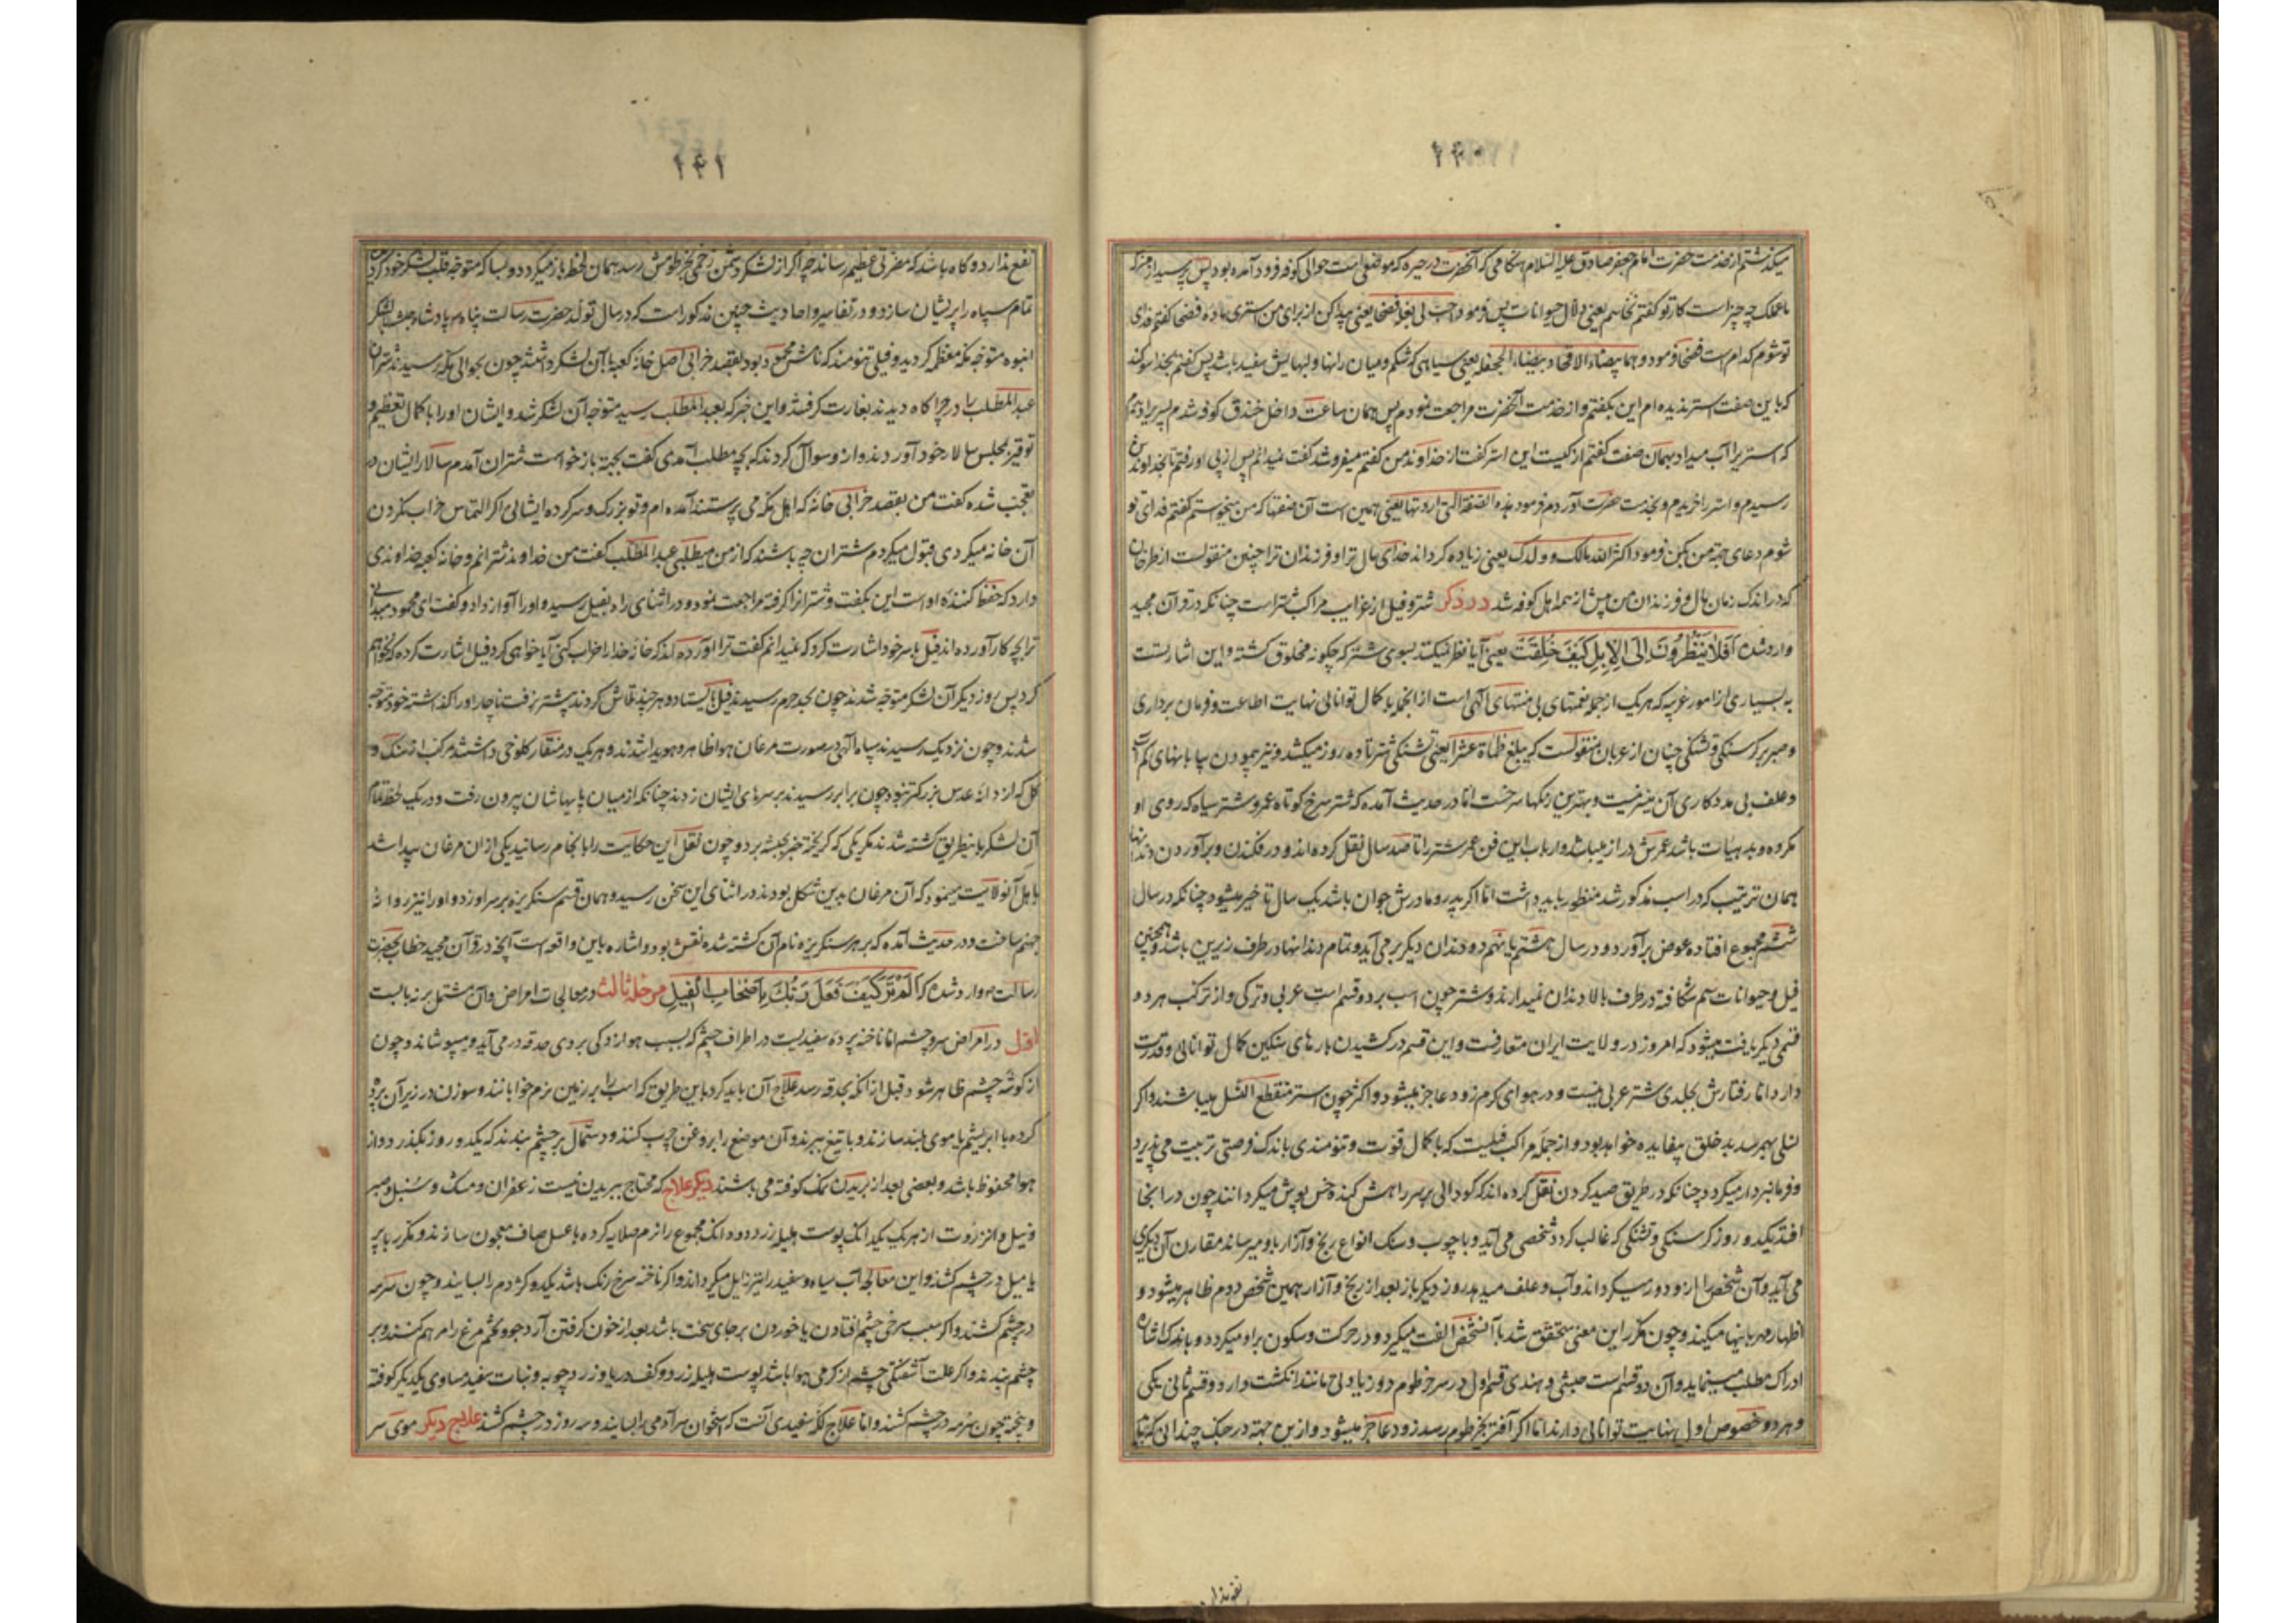 ۲۴۰
میکذشتم از خدمت حضرت امام جعفر صادق علیه السلام هنکامی که آنحضرت در حیره که موضعی است حوالی کوفه فرود آمده بود پس پرسید از من که
ما عملک چه چیز است کار تو کفتم نخاسم یعنی دلال حیوانات پس فرمود اصب لی بغلة فضحا یعنی پیدا کن از برای من استری ماده فضحا کفتم فدای
تو شوم کدام است فضحا فرمود دهما بیضاء الافخاذ بیضاء الجحفله یعنی سیاهی که شکم و میان رانها و لبهایش سفید باشد پس کفتم بخدا سوکند
که باین صفت استر ندیده ام این بکفتم و از خدمت آنحضرت مراجعت نمودم پس همان ساعت داخل خندق کوفه شدم پسریرا دیدم
که استریرا آب میداد بهمان صفت کفتم از کیست این استر کفت از خداوند من کفتم میفروشد کفت نمیدانم پس از پی او رفتم تا بخداوندش
رسیدم و استر را خریدم و بخدمت حضرت آوردم فرمود هذه الصفة التی اردتها یعنی همین است آن صفتها که من میخواستم کفتم فدای تو
شوم دعای جهة من بکن فرمود اکثر الله مالک و ولدک یعنی زیاده کرداند خدای مال ترا و فرزندان ترا چنین منقولست از طرخان
که در اندک زمان مال و فرزندان من بیش از همه اهل کوفه شد در ذکر شتر و فیل از غرایب مراکب شتر است چنانکه در قرآن مجید
وارد شده اَفَلا یَنْظُرُونَ اِلَی الْاِبِلِ کَیْفَ خُلِقَتْ یعنی آیا نظر نمیکنند بسوی شتر که چکونه مخلوق کشته و این اشارتست
به بسیاری از امور غریبه که هر یک از جمله نعمتهای بی منتهای آلهی است از انجمله با کمال توانائی نهایت اطاعت و فرمان برداری
و صبر بر کرسنکی و تشنکی چنان از عربان منقولست که یبلغ ظماه عشرا یعنی تشنکی شتر تا ده روز میکشد و نیز پیمودن بیابانهای کم آب
و علف بی مددکاری آن میسر نیست و بهترین رنکها سرخست اما در حدیث آمده که شتر سرخ کوتاه عمر و شتر سیاه که روی او
مکروه و بد هیات باشد عمرش دراز میباشد و ارباب این فن عمر شتر را تا صد سال نقل کرده اند و در فکندن و برآوردن دندانها
همان ترتیب که در اسب مذکور شد منظور باید داشت اما اکر پدر و مادرش جوان باشد یک سال تاخیر میشود چنانکه در سال
ششم مجموع افتاده عوض برآورد و در سال هشتم یا نهم دو دندان دیکر بر می آید و تمام دندانها در طرف زیرین باشد و همچنین
فیل و حیوانات سم شکافته در طرف بالا دندان نمیدارند و شتر چون اسب بر دو قسم است عربی و ترکی و از ترکیب هر دو
قسمی دیکر یافت میشود که امروز در ولایت ایران متعارفست و این قسم در کشیدن بارهای سنکین کمال توانائی و قدرت
دارد اما رفتارش بجلدی شتر عربی نیست و در هوای کرم زود عاجز میشود و اکثر چون استر منقطع النسل میباشند و اکر
نسلی بهم رسد بد خلق بیفایده خواهد بود و از جمله مراکب فیلیست که با کمال قوت و تنومندی باندک فرصتی تربیت می پذیرد
و فرمانبردار میکردد چنانکه در طریق صید کردن نقل کرده اند که کودالی بر سر راهش کنده خس پوش میکردانند چون در انجا
افتد یکدو روز کرسنکی و تشنکی که غالب کردد شخصی می آید و با چوب و سنک انواع رنج و آزار باو میرساند مقارن آن دیکری
می آید و آن شخص را از و دور میکرداند و آب و علف میدهد روز دیکر باز بعد از رنج و آزار همین شخص دوم ظاهر میشود و
اظهار مهربانیها میکند و چون مکرر این معنی متحقق شد با آن شخص الفت میکیرد و در حرکت و سکون برام میکردد و باندک اشاره
ادراک مطلب مینماید و آن دو قسم است حبشی و هندی قسم اول در سر خرطوم دو زیادتی مانند انکشت دارد و قسم ثانی یکی
و هر دو خصوص اول نهایت توانائی دارند اما اکر آفتی بخرطوم رسد زود عاجز میشود و ازین جهة در جنک چندانی که باید
نفع ندارد
۲۴۱
نفع ندارد و کاه باشد که مضرتی عظیم رساند چه اکر از لشکر دشمن زخمی بخرطومش رسد همان لحظه باز میکردد و بسا که متوجه قلب لشکر خود کردد
تمام سپاه را پریشان سازد و در تفاسیر و احادیث چنین مذکور است که در سال تولد حضرت رسالت پناه پادشاه حبشه با لشکر
انبوه متوجه مکه معظمه کردید و فیلی تنومند که نامش محمود بود بقصد خرابی اصل خانه کعبه با آن لشکر داشت چون بحوالی مکه رسیدند شتران
عبد المطلب را در چراکاه دیدند بغارت کرفتند و این خبر که بعبد المطلب رسید متوجه آن لشکر شد و ایشان او را با کمال تعظیم و
توقیر بمجلس سالار خود آوردند و از و سوال کردند که بچه مطلب آمدی کفت بجهة باز خواست شتران آمدم سالار ایشان در
تعجب شده کفت من بقصد خرابی خانه که اهل مکه می پرستند آمده ام و تو بزرک و سرکرده ایشانی اکر التماس خراب نکردن
آن خانه میکردی قبول میکردم شتران چه باشند که از من میطلبی عبد المطلب کفت من خداوند شترانم و خانه کعبه خداوندی
دارد که حفظ کننده او است این بکفت و شترانرا کرفته مراجعت نمود و در اثنای راه بفیل رسید و او را آواز داد و کفت ای محمود میدانی
ترا بچه کار آورده اند فیل با سر خود اشارت کرد که نمیدانم کفت ترا آورده اند که خانه خدا را خراب کنی آیا خواهی کرد فیل اشارت کرده که نخواهم
کرد پس روز دیکر آن لشکر متوجه شدند چون بحد حرم رسیدند فیل بایستاد و هر چند تلاش کردند پیشتر نرفت ناچار او را کذاشته خود متوجه
شدند و چون نزدیک رسیدند سپاه آلهی بصورت مرغان هوا ظاهر و هویدا شدند و هر یک در منقار کلوخی داشتند مرکب از سنک و
کل که از دانه عدس بزرکتر نبود چون برابر رسیدند بر سرهای ایشان زدند چنانکه از میان پایهاشان بیرون رفت و در یک لحظه تمام
آن لشکر باینطریق کشته شدند مکر یکی که کریخته خبر بحبشه برد و چون نقل این حکایت را با نجام رسانید یکی از ان مرغان پیدا شد
با هل آنولایت مینمود که آن مرغان بدین شکل بودند در اثنای این سخن رسید و همان قسم سنکریزه بر سر او زد و او را نیز روانه
جهنم ساخت و در حدیث آمده که بر هر سنکریزه نام آن کشته شده نقش بود و اشاره باین واقعه است آنچه در قرآن مجید خطاب بحضرت
رسالت وارد شده که اَلَمْ تَرَ کَیْفَ فَعَلَ رَبُّکَ بِاَصْحَابِ الْفِیلِ مرحله ثالث در معالجات امراض و آن مشتمل بر نه بابست
اول در امراض سر و چشم اما ناخنه پرده سفیدیست در اطراف چشم که بسبب هوازدکی بروی حدقه در می آید و میپوشاند و چون
از کوشه چشم ظاهر شود قبل از انکه بحدقه رسد علاج آن باید کرد باین طریق که اسب را بر زمین نرم خوابانند و سوزن در زیر آن پرده
کرده با ابریشم یا موی بلند سازند و با تیغ ببرند و آن موضع را بروغن چرب کنند و دستمال بر چشم بندند که یکدو روز بکذرد و از
هوا محفوظ باشد و بعضی بعد از بریدن نمک کوفته می پاشند دیکر علاج که محتاج ببریدن نیست زعفران و مشک و سنبل و صبر
و نیل و انزروت از هر یک یکدانک پوست هلیله زرد دو دانک مجموع را نرم صلایه کرده با عسل صاف معجون سازند و مکرر با پر
یا میل در چشم کشند و این معالجه آب سیاه و سفید را نیز زایل میکرداند و اکر ناخنه سرخ رنک باشد یکدو کژدم را بسایند و چون سرمه
در چشم کشند و اکر سبب سرخی چشم افتادن یا خوردن بر جای سخت باشد بعد از خون کرفتن آرد جو و تخم مرغ را مرهم کنند و بر
چشم بندند و اکر علت آشفتکی چشم از کرمی هوا باشد پوست هلیله زرد و کف دریا و زرد چوبه و نبات سفید مساوی یکدیکر کوفته
و بیخته چون سرمه در چشم کشند و اما علاج لکه سفیدی آنست که استخوان سر آدمی را بسایند و سه روز در چشم کشند علاج دیکر موی سر